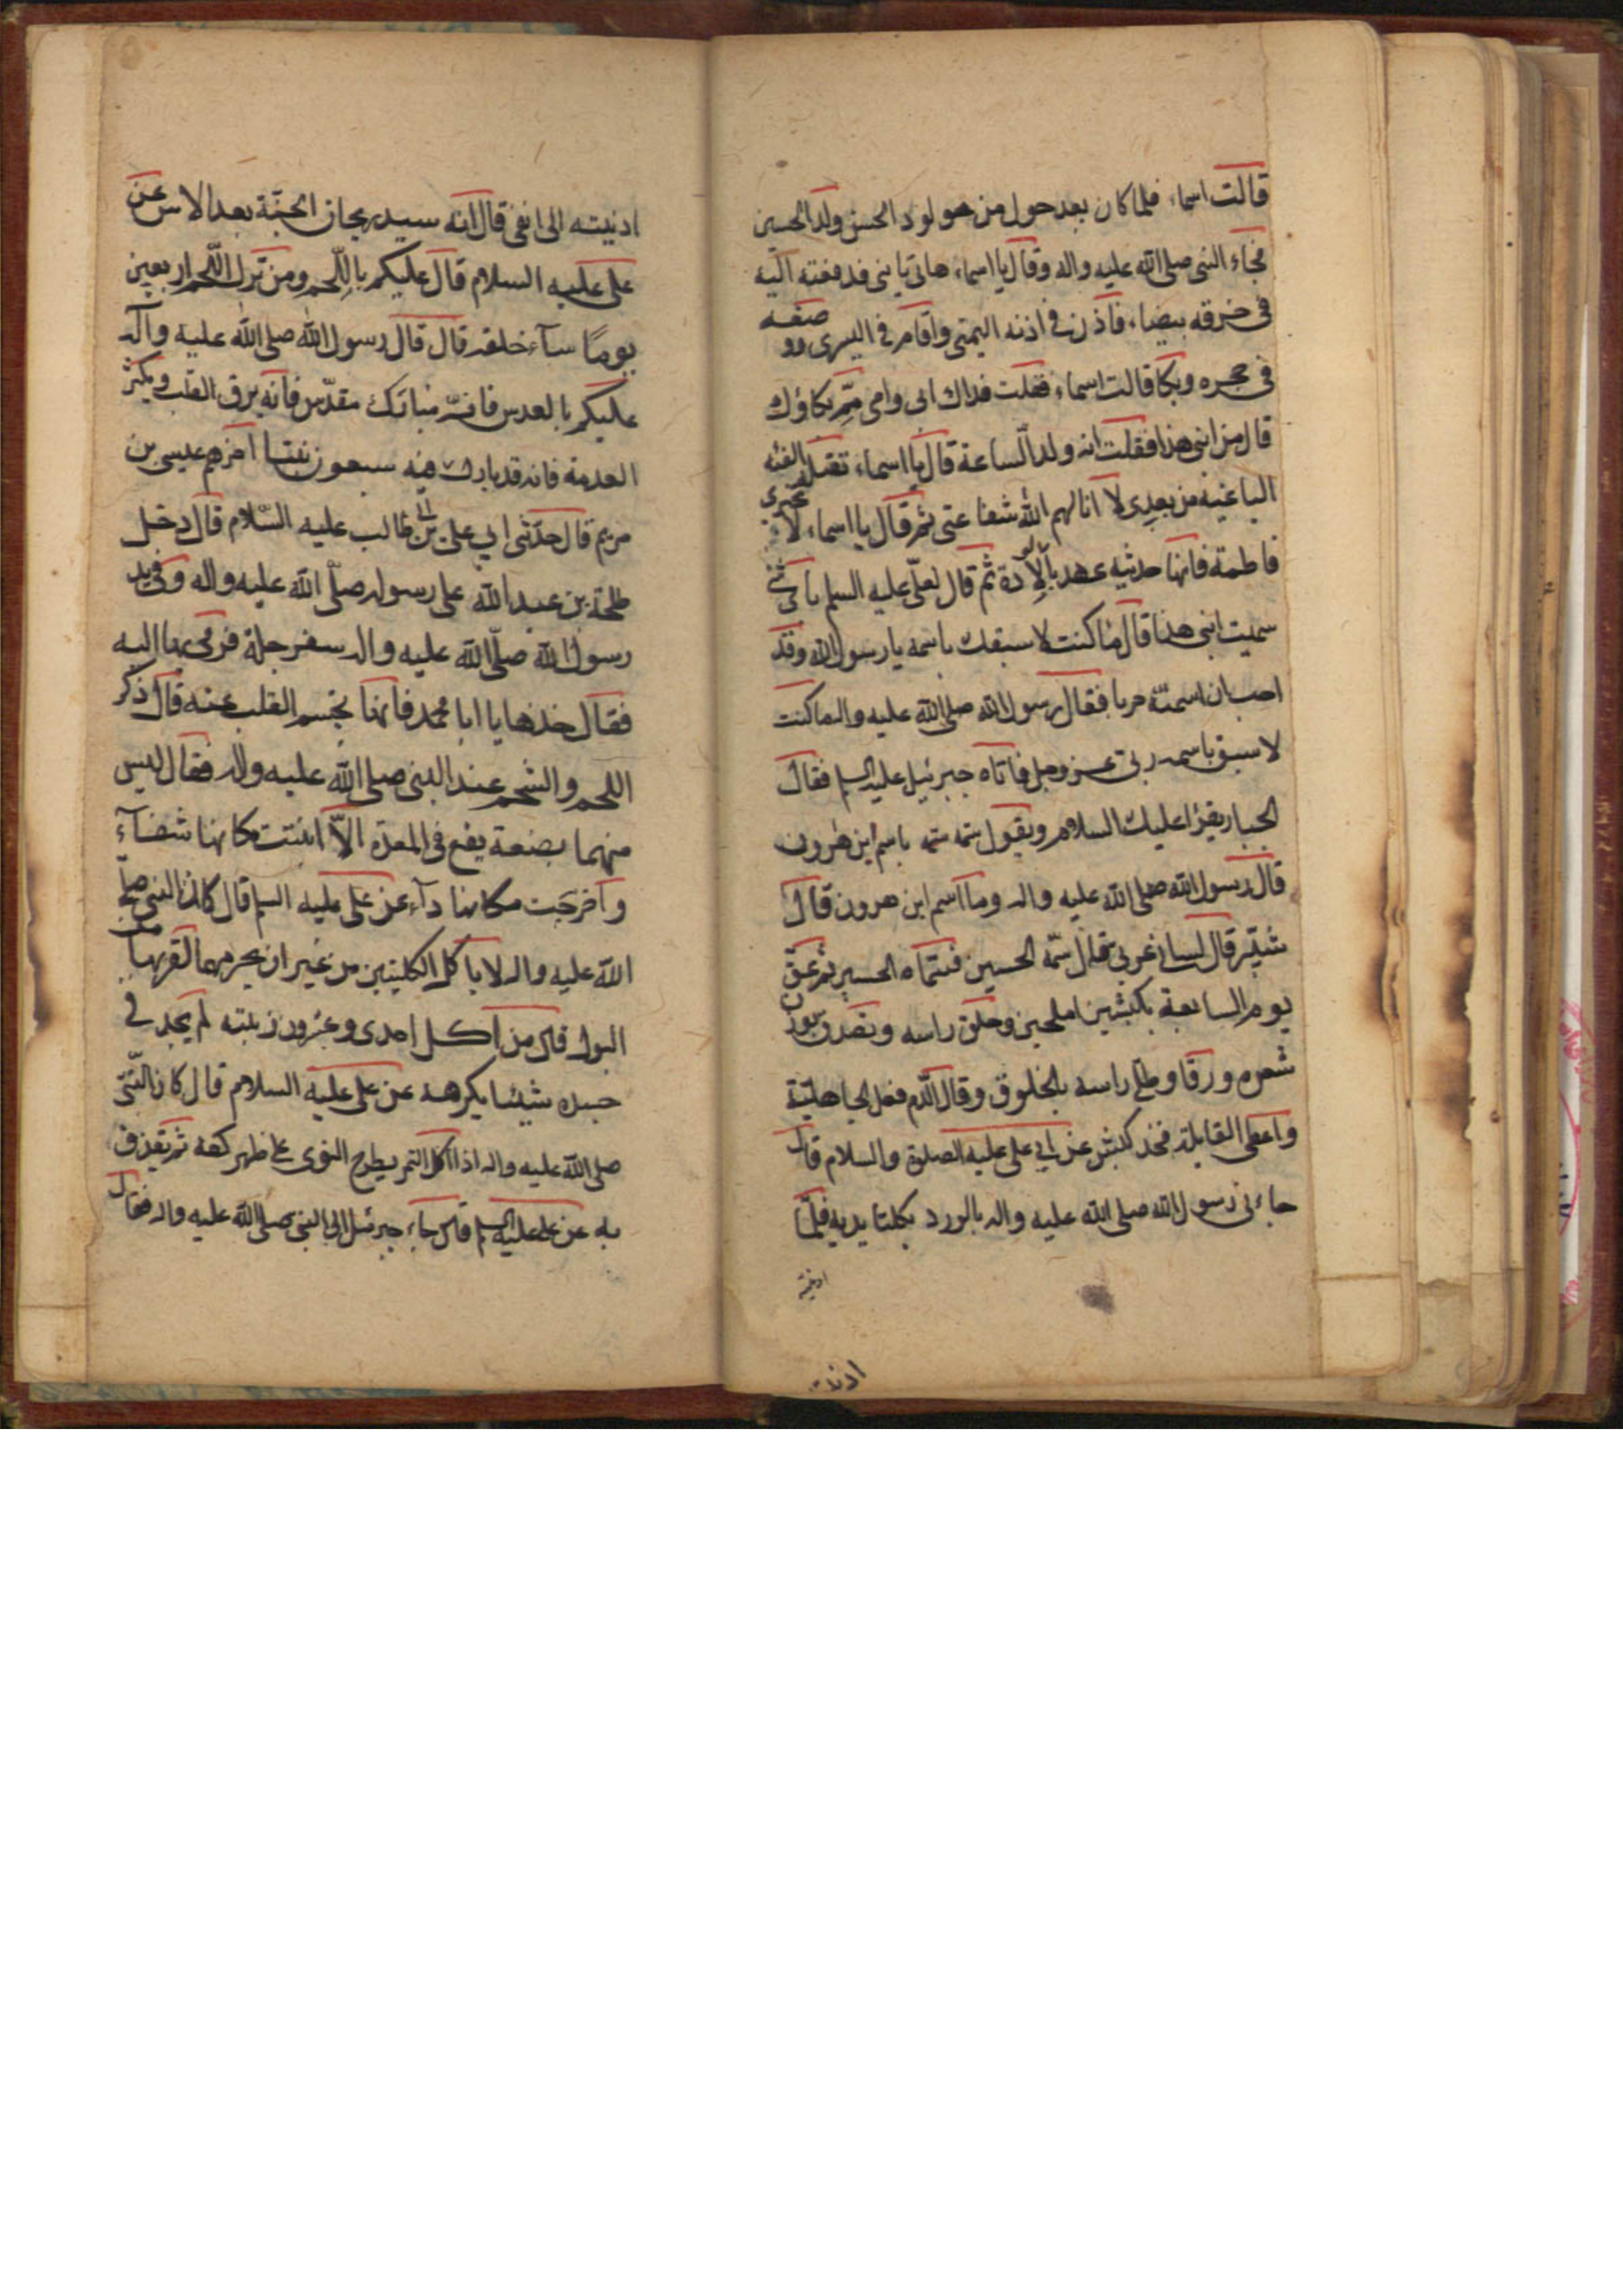 قالت اسماء فلما كان بعد حول من مولود الحسن ولد الحسين
فجاء النبى صلى الله عليه واله وقال يا اسماء هاتى يا بنى فدفعته اليه
فى خرقه بيضاء فاذن فى اذنه اليمنى واقام فى اليسرى ووضعه
فى حجره وبكا قالت اسماء فقلت فداك ابى وامى مم بكاؤك
قال من ابنى هذا فقلت انه ولد الساعة قال يا اسماء تقتله الفئه
الباغيه من بعدى لا انالهم الله شفاعتى ثم قال يا اسماء لا تخبرى
فاطمة فانها حديثه عهد بالولادة ثم قال لعلى عليه السلم باى شئ
سميت ابنى هذا قال ما كنت لاسبقك باسمه يا رسول الله وقد
احب ان اسميه حربا فقال رسول الله صلى الله عليه واله ما كنت
لاسبق باسمه ربى عز وجل فاتاه جبرئيل عليه السلم فقال
الجبار يقرا عليك السلام ويقول سمه سمه باسم ابن هرون
قال رسول الله صلى الله عليه واله وما اسم ابن هرون قال
شبير قال لسانى عربى قال سمه الحسين فسماه الحسين ثم عق
يوم السابعة بكبشين املحين وحلق راسه وتصدق بوزن
شعره ورقا وطلى راسه بالخلوق وقال الدم فعل الجاهلية
واعطى القابلة فخذ كبش عن ابى على عليه الصلوة والسلام قال
جاءنى رسول الله صلى الله عليه واله بالورد بكلتا يديه فلما
ادنيته
ادنيته
ادنيته الى انفى قال انه سيد ريحان الجنة بعد الاس عن
على عليه السلام قال عليكم باللحم ومن ترك اللحم اربعين
يوما ساء خلقه قال قال رسول الله صلى الله عليه وآله
عليكم بالعدس فانه مبارك مقدس فانه يرق القلب ويكثر
الدمعة فانه قد بارك فيه سبعون نبيا اخرهم عيسى بن
مريم قال حدثنى ابي على بن ابى طالب عليه السلام قال دخل
طلحة بن عبيد الله على رسول صلى الله عليه واله وفى يد
رسول الله صلى الله عليه واله سفرجلة فرمى بها اليه
فقال خذها يا ابا محمد فانها تجسم القلب عنه قال ذكر
اللحم والشحم عند النبى صلى الله عليه واله فقال ليس
منهما بضعة يقع فى المعدة الا انبتت مكانها شفآء
واخرجت مكانها دآء عن على عليه السلم قال كان النبى صلى
الله عليه واله لا ياكل الكليتين من غير ان يحرمهما لقربهما من
البول قال من اكل احدى وعشرون زبيبة لم يجد فى
جسده شيئا يكرهه عن على عليه السلام قال كان النبى
صلى الله عليه واله اذا اكل التمر يطرح النوى على ظهر كفه ثم يقذف
به عن على عليه السلم قال جاء جبرئيل الى النبى صلى الله عليه واله فقال